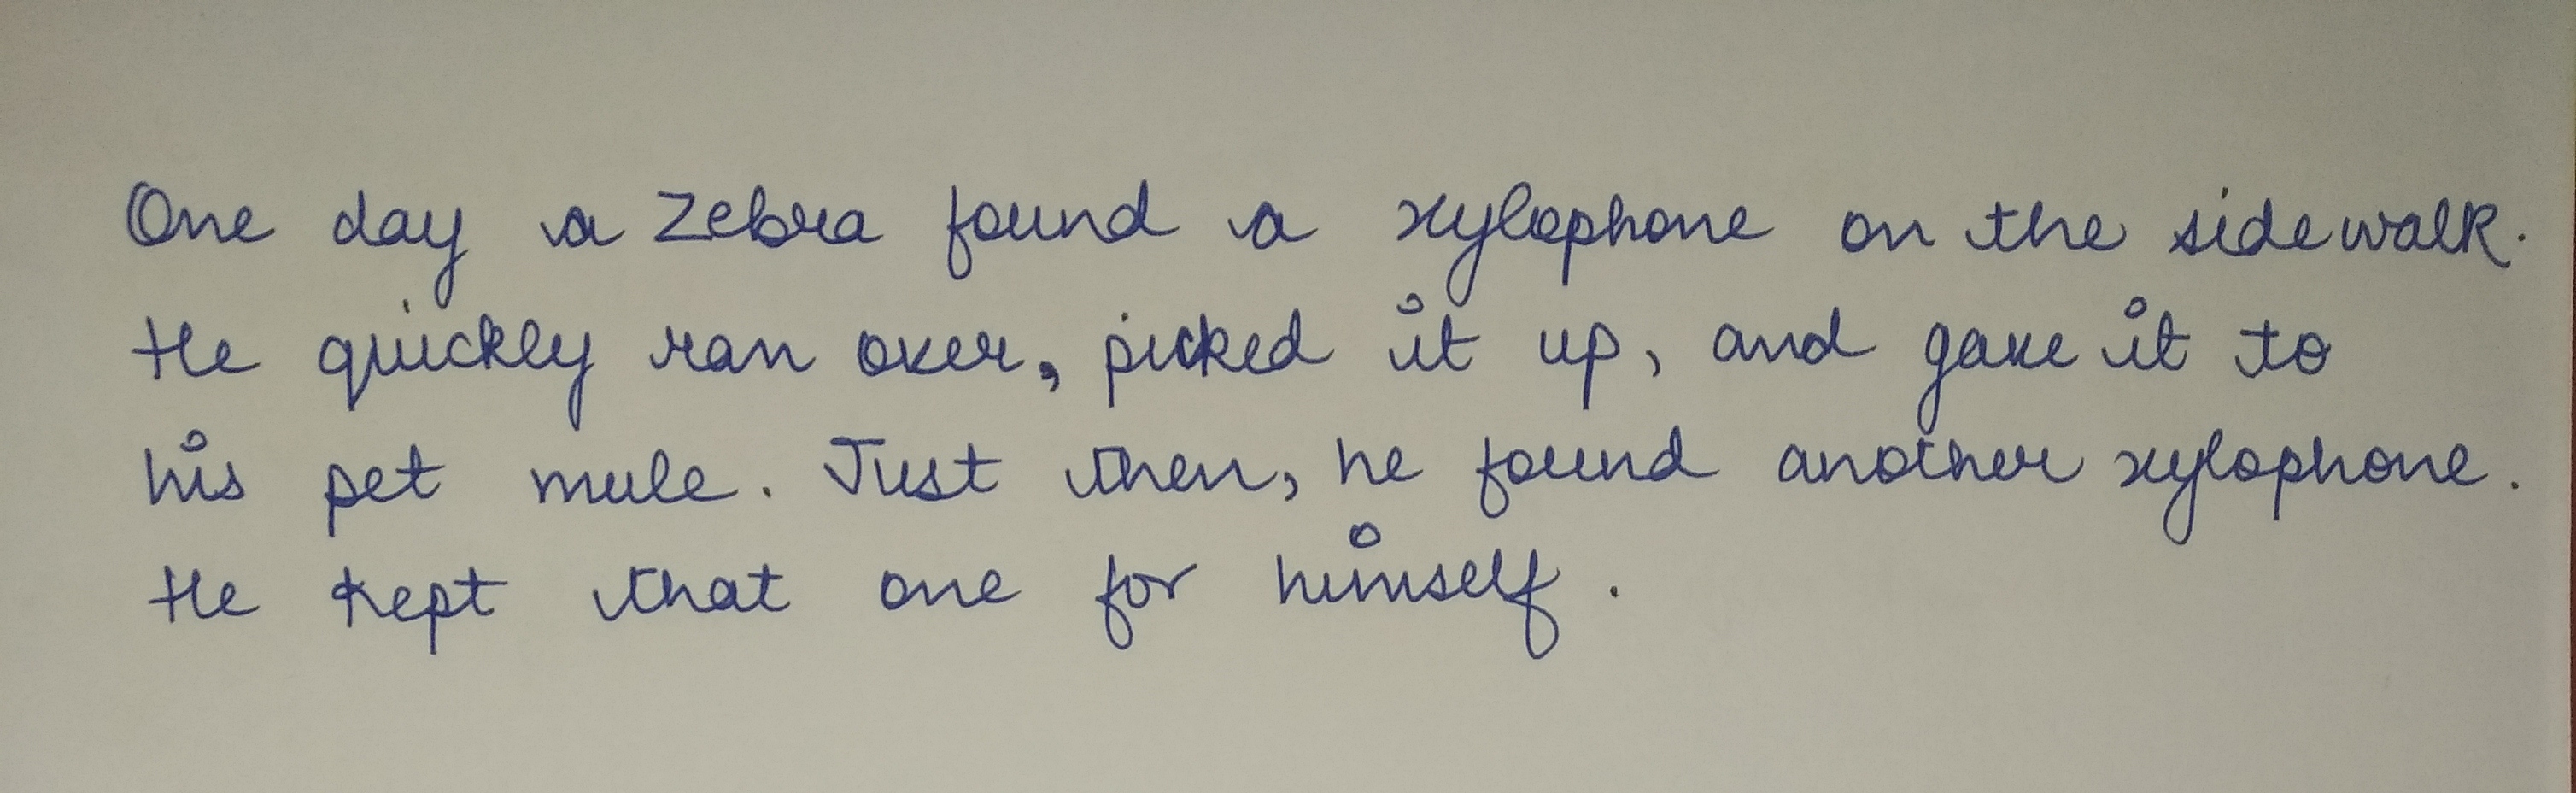 One day a zebra found a xylophone on the sidewalk.
He quickly ran over, picked it up, and gave it to
his pet mule. Just then, he found another xylophone.
He kept that one for himself.